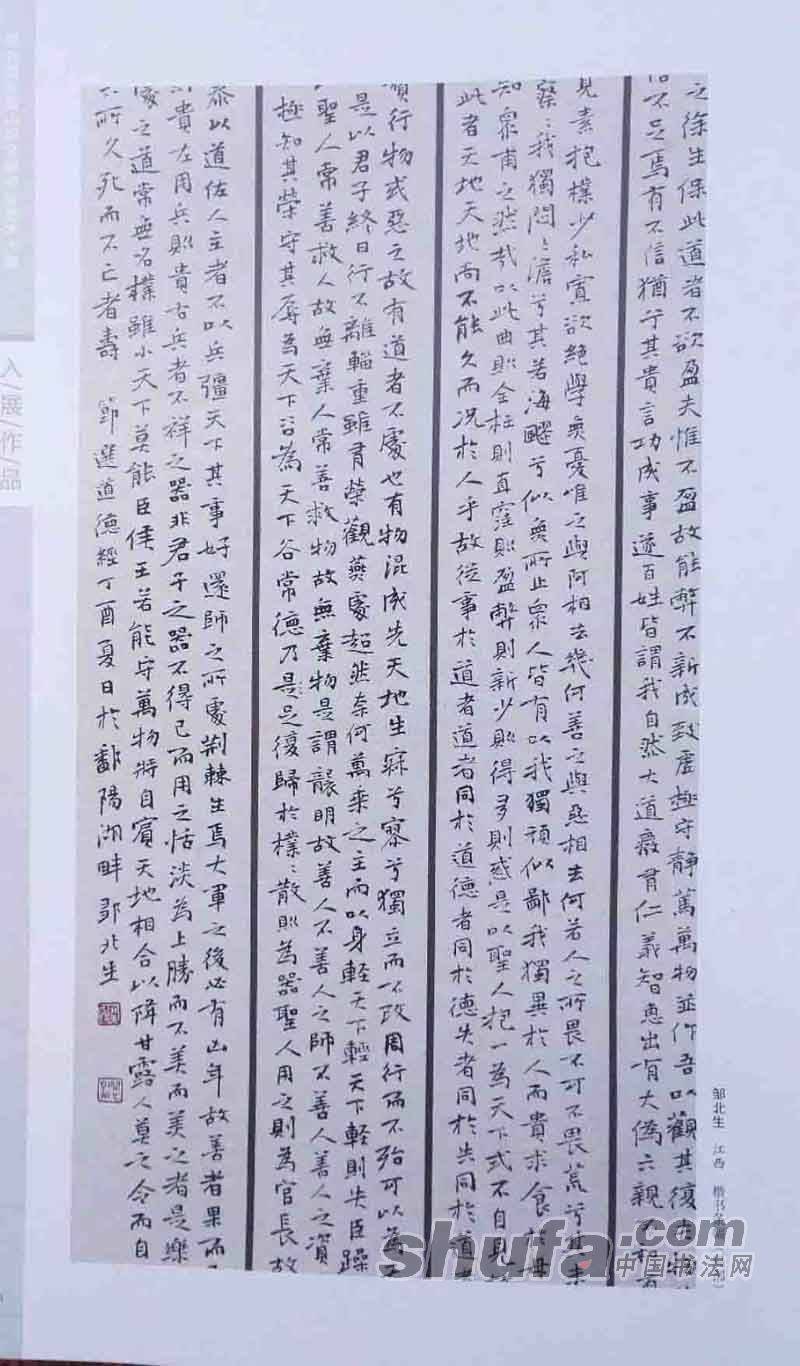 之徐生保此道者不欲盈夫惟不盈故能弊不新成致虛極守靜篤萬物並作吾以觀其復夫物
信不足焉有不信猶兮其貴言功成事遂百姓皆謂我自然大道廢有仁義智惠出有大偽六親不和有
見素抱樸少私寡欲絕學無憂唯之與阿相去幾何善之與惡相去何若人之所畏不可不畏荒兮其未
察察我獨悶悶澹兮其若海飂兮似無所止眾人皆有以我獨頑似鄙我獨異於人而貴求食於母
知眾甫之然哉以此曲則全枉則直窪則盈弊則新少則得多則惑是以聖人抱一為天下式不自見
此者天地天地尚不能久而況於人乎故從事於道者道者同於道德者同於德失者同於失同於道
贅行物或惡之故有道者不處也有物混成先天地生寂兮寥兮獨立而不改周行而不殆可以為
是以君子終日行不離輜重雖有榮觀燕處超然奈何萬乘之主而以身輕天下輕天下輕則失臣躁
聖人常善救人故無棄人常善救物故無棄物是謂襲明故善人不善人之師不善人善人之資
極知其榮守其辱為天下谷為天下谷常德乃是足復歸於樸樸散則為器聖人用之則為官長故
泰以道佐人主者不以兵彊天下其事好還師之所處荊棘生焉大軍之後必有凶年故善者果而
貴左用兵則貴右兵者不祥之器非君子之器不得已而用之恬淡為上勝而不美而美之者是樂
處之道常無名樸雖小天下莫能臣侯王若能守萬物將自賓天地相合以降甘露人莫之令而自
不失所久死而不亡者壽 節選道德經丁酉夏日於鄱陽湖畔鄒北生
邹北生 江西 楷书
入/展/作/品
shufa.com
中国书法网